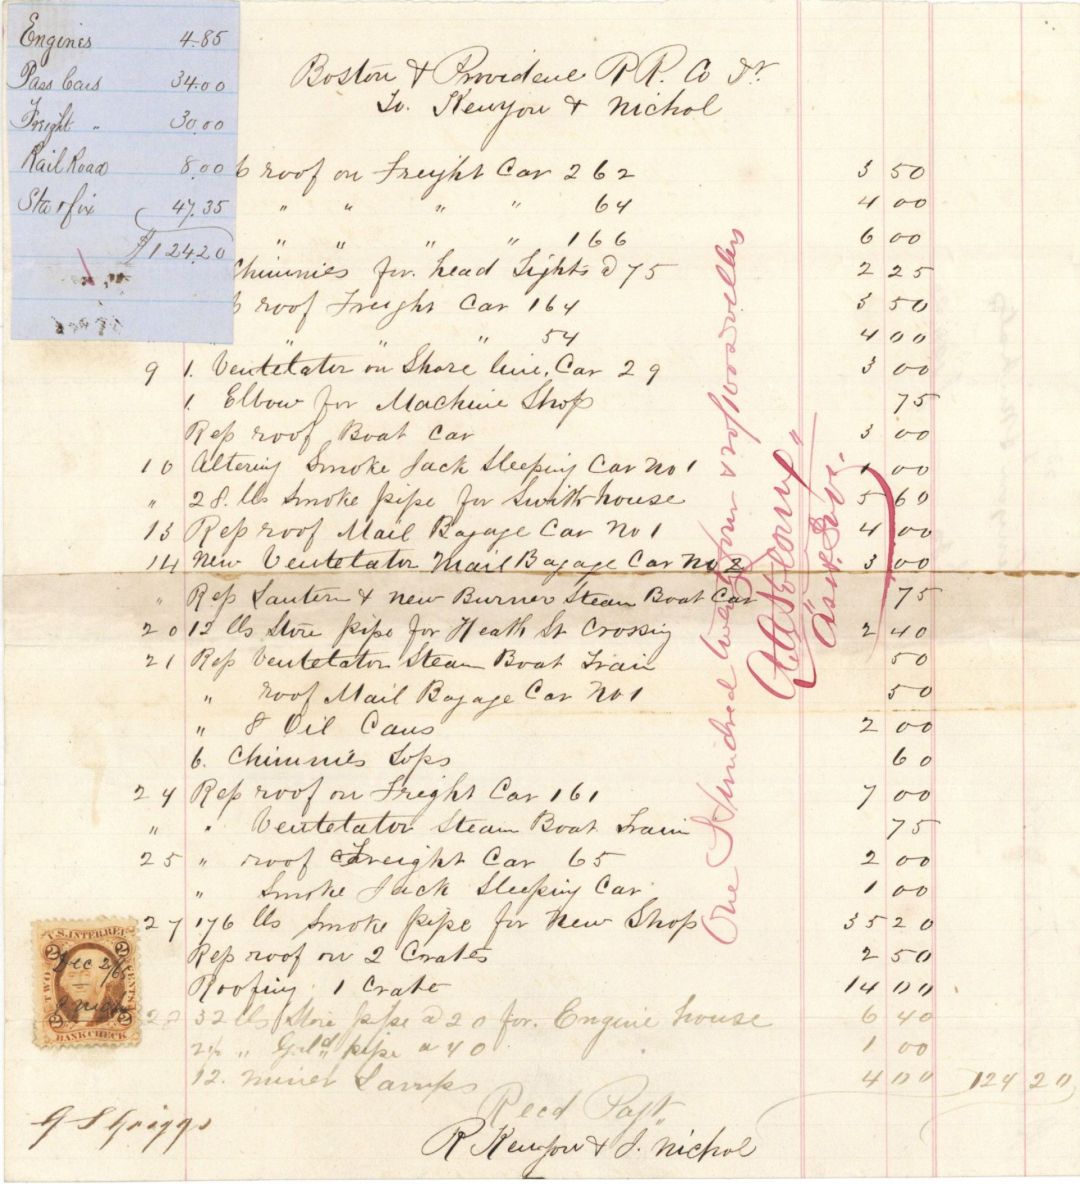 Engines 4.85
Pass Cars 34.00
Freight " 30.00
Rail Road 8.00
47.35
$124.20
Boston & Providence R R. Co Dr
To. Kenyon & Nichol
roof on Freight Car 262 3 50
" " " " 64 4 00
" " " " 166 6 00
Chimnies for head Lights @ 75 2 25
roof Freight Car 164 3 50
" " " 54 4 00
9 1. Ventelator on Shore line, Car 29 3 00
1. Elbow for Machine Shop 75
Rep roof Boat Car 3 00
10 Altering Smoke Jack Sleeping Car No 1 1 00
" 28. lbs Smoke pipe for Swith house 5 60
13 Rep roof Mail Bagage Car No 1 4 00
14 New Ventelator Mail Bagage Car No 2 3 00
" Rep Lantern & new Burner Steam Boat Car 75
20 12 lbs Stove pipe for Heath St Crossing 2 40
21 Rep Ventelator Steam Boat Train 50
" roof Mail Bagage Car No 1 50
" 8 Oil Cans 2 00
6. Chimnies Tops 60
24 Rep roof on Freight Car 161 7 00
" " Ventelator Steam Boat Train 75
25 " roof Freight Car 65 2 00
" Smoke Jack Sleeping Car 1 00
27 176 lbs Smoke pipe for New Shop 35 20
Rep roof on 2 Crates 2 50
Roofing 1 Crate 14 00
32 lbs Stove pipe @ 20 for. Engine house 6 40
2½ " pipe a 40 1 00
12. miner Lamps 4 00 124 20
Recd Payt
R Kenyon & J. Nichol
G S Griggs
One Hundred twenty four &
U.S. INTER. REV.
2 2
TWO CENTS
Dec 2/65
J Nichol
2 2
BANK CHECK